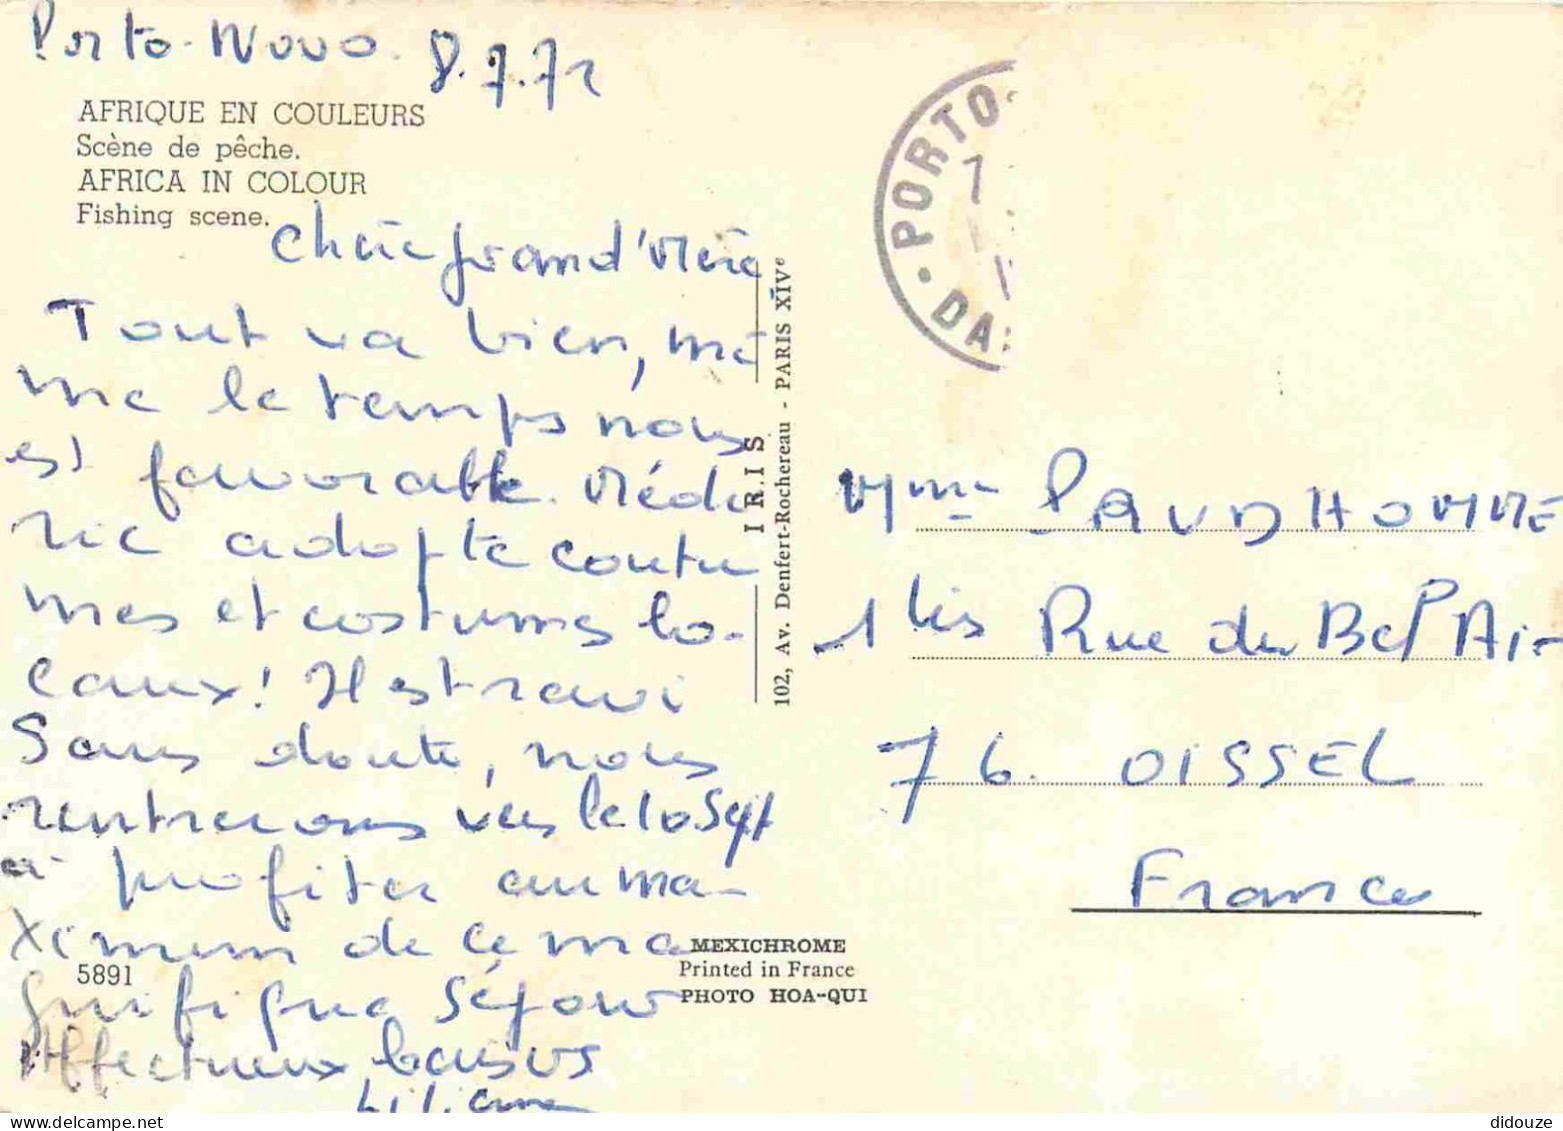 Porto-Novo. 8.7.72
AFRIQUE EN COULEURS
Scène de pêche.
AFRICA IN COLOUR
Fishing scene.
Chère grand'Mère,
Tout va bien, mê
me le temps nous
est favorable. Médé
ric adopte coutu
mes et costumes lo-
caux! Il est ravi
Sans doute, nous
rentrerons vers le 10 Sept
à profiter au ma-
ximum de ce ma
gnifique séjour
Affectueux baisers
Liliane
5891
I R I S
102, Av. Denfert-Rochereau - PARIS XIVe
MEXICHROME
Printed in France
PHOTO HOA-QUI
PORTO
7
DA
Mme PRUDHOMME
1 bis Rue du Bel Air
76. OISSEL
France
didouze